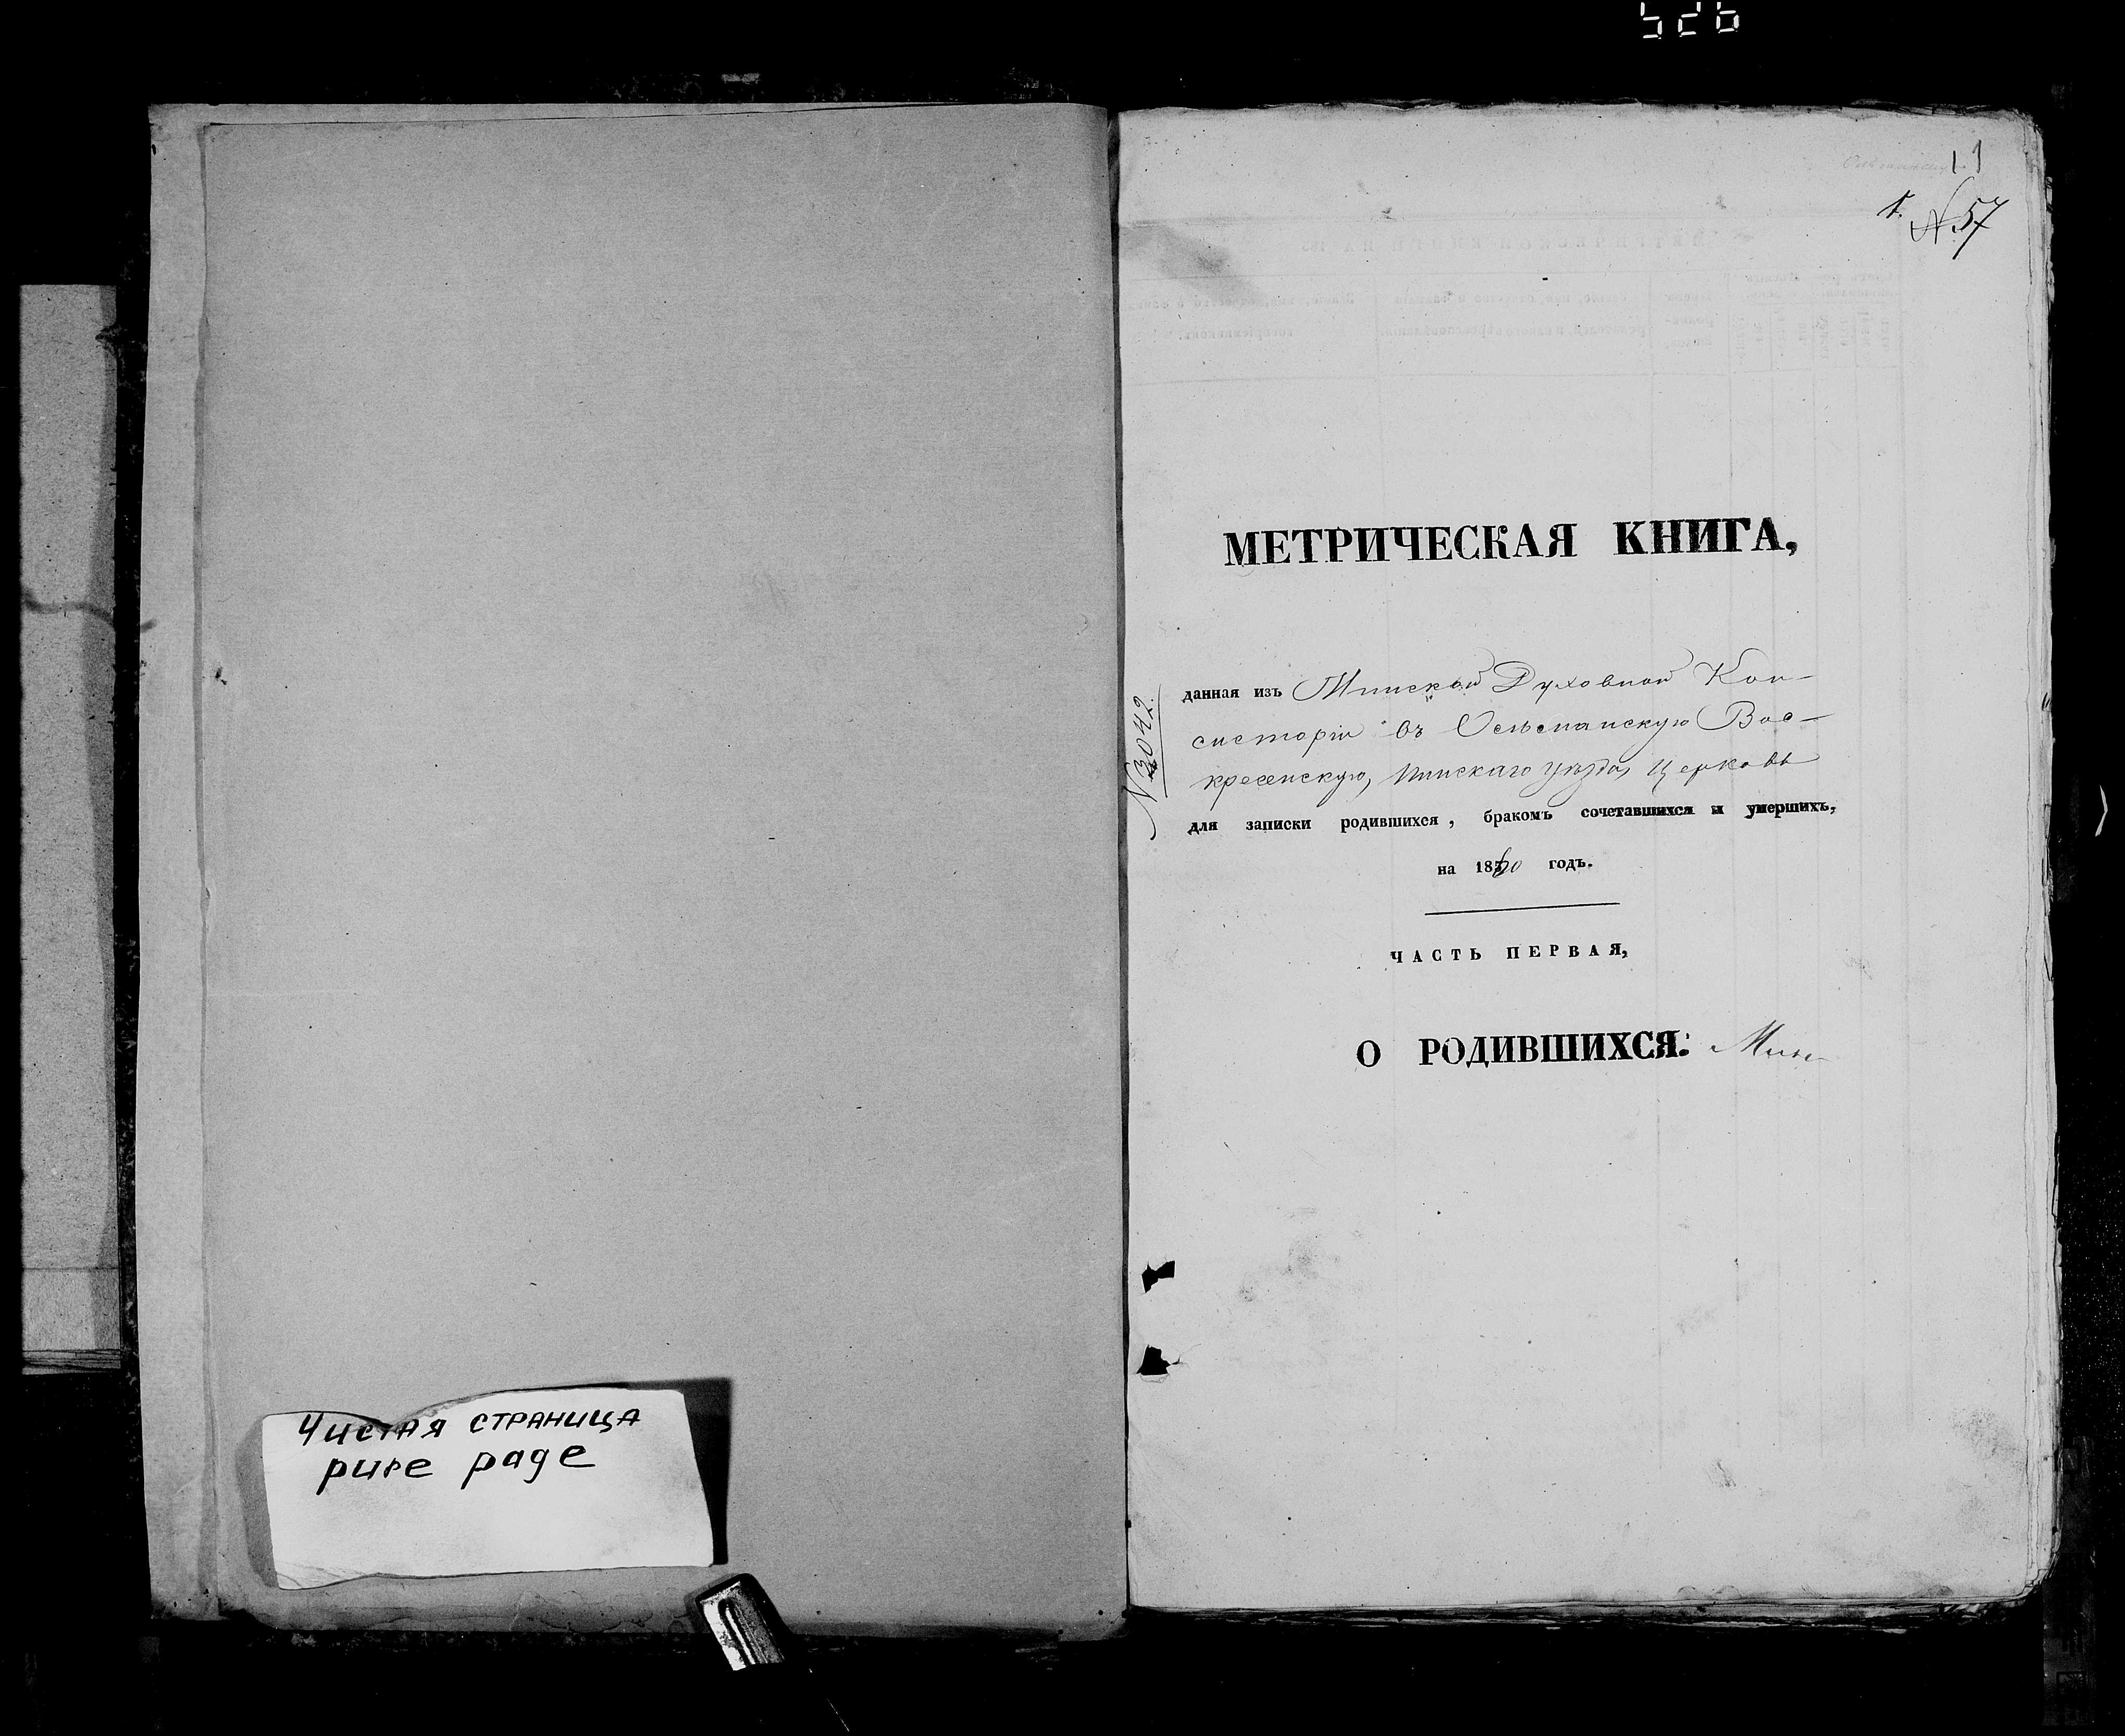 526
11
1. N 57
МЕТРИЧЕСКАЯ КНИГА,
N 3042
данная изъ Минской Духовной Кон-
систоріи въ Осльспанскую Вос-
кресенскую, Пинскаго уѣзда, Церковь
для записки родившихся, бракомъ сочетавшихся и умершихъ,
на 1860 годъ.
ЧАСТЬ ПЕРВАЯ,
О РОДИВШИХСЯ:
Чистая страница
pure page